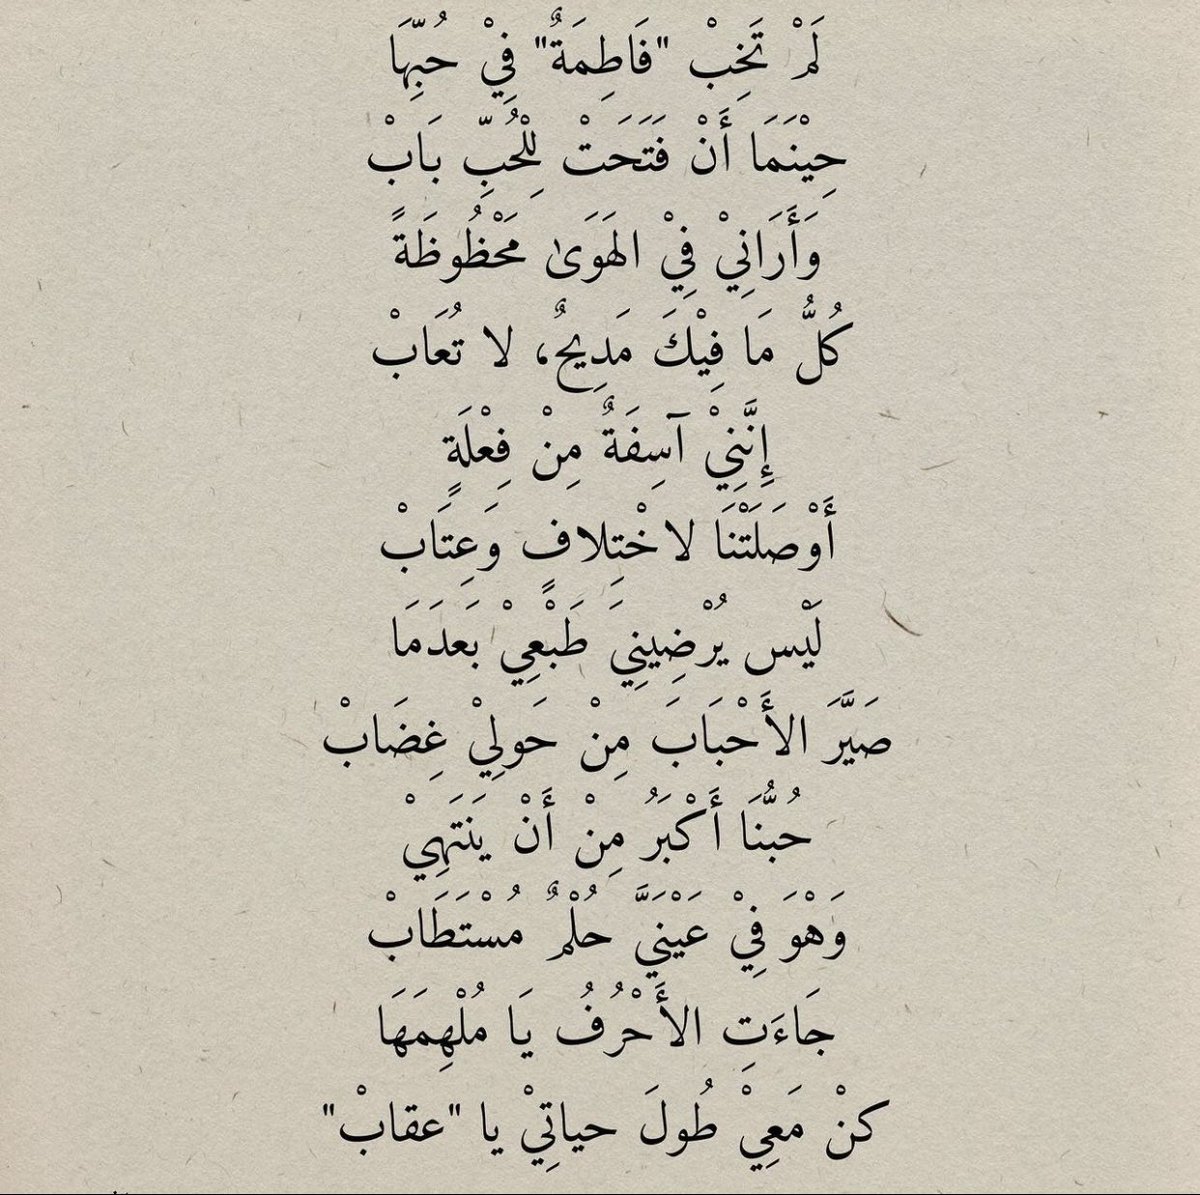 لَمْ تَخِبْ "فَاطِمَةٌ" فِيْ حُبِّهَا
حِيْنَمَا أَنْ فَتَحَتْ لِلْحُبِّ بَابْ
وَأَرَانِيْ فِيْ الهَوَىٰ مَحْظُوظَةً
كُلُّ مَا فِيْكَ مَدِيحٌ، لا تُعَابْ
إِنَّنِيْ آسِفَةٌ مِنْ فِعْلَةٍ
أَوْصَلَتْنَا لاخْتِلافٍ وَعِتَابْ
لَيْس يُرْضِينِيَ طَبْعِيْ بَعَدَمَا
صَيَّرَ الأَحْبَابَ مِنْ حَولِيْ غِضَابْ
حُبُّنَا أَكْبَرُ مِنْ أَنْ يَنتَهِيْ
وَهْوَ فِيْ عَيْنَيَّ حُلْمٌ مُسْتَطَابْ
جَاءَتِ الأَحْرُفُ يَا مُلْهِمَهَا
كنْ مَعِيْ طُولَ حياتِيْ يا "عقابْ"